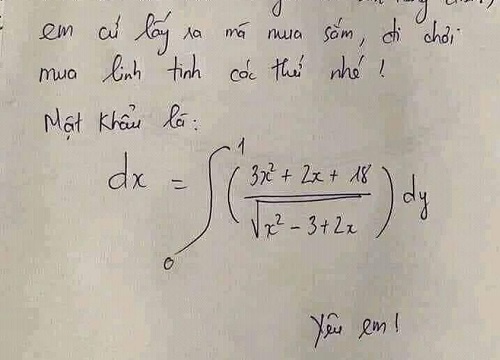 em cứ lấy ra mà mua sắm, đi chơi
mua linh tinh các thứ nhé!
Mật khẩu là:
dx = ∫₀¹ ( (3x² + 2x + 18) / √(x² - 3 + 2x) ) dy
Yêu em!